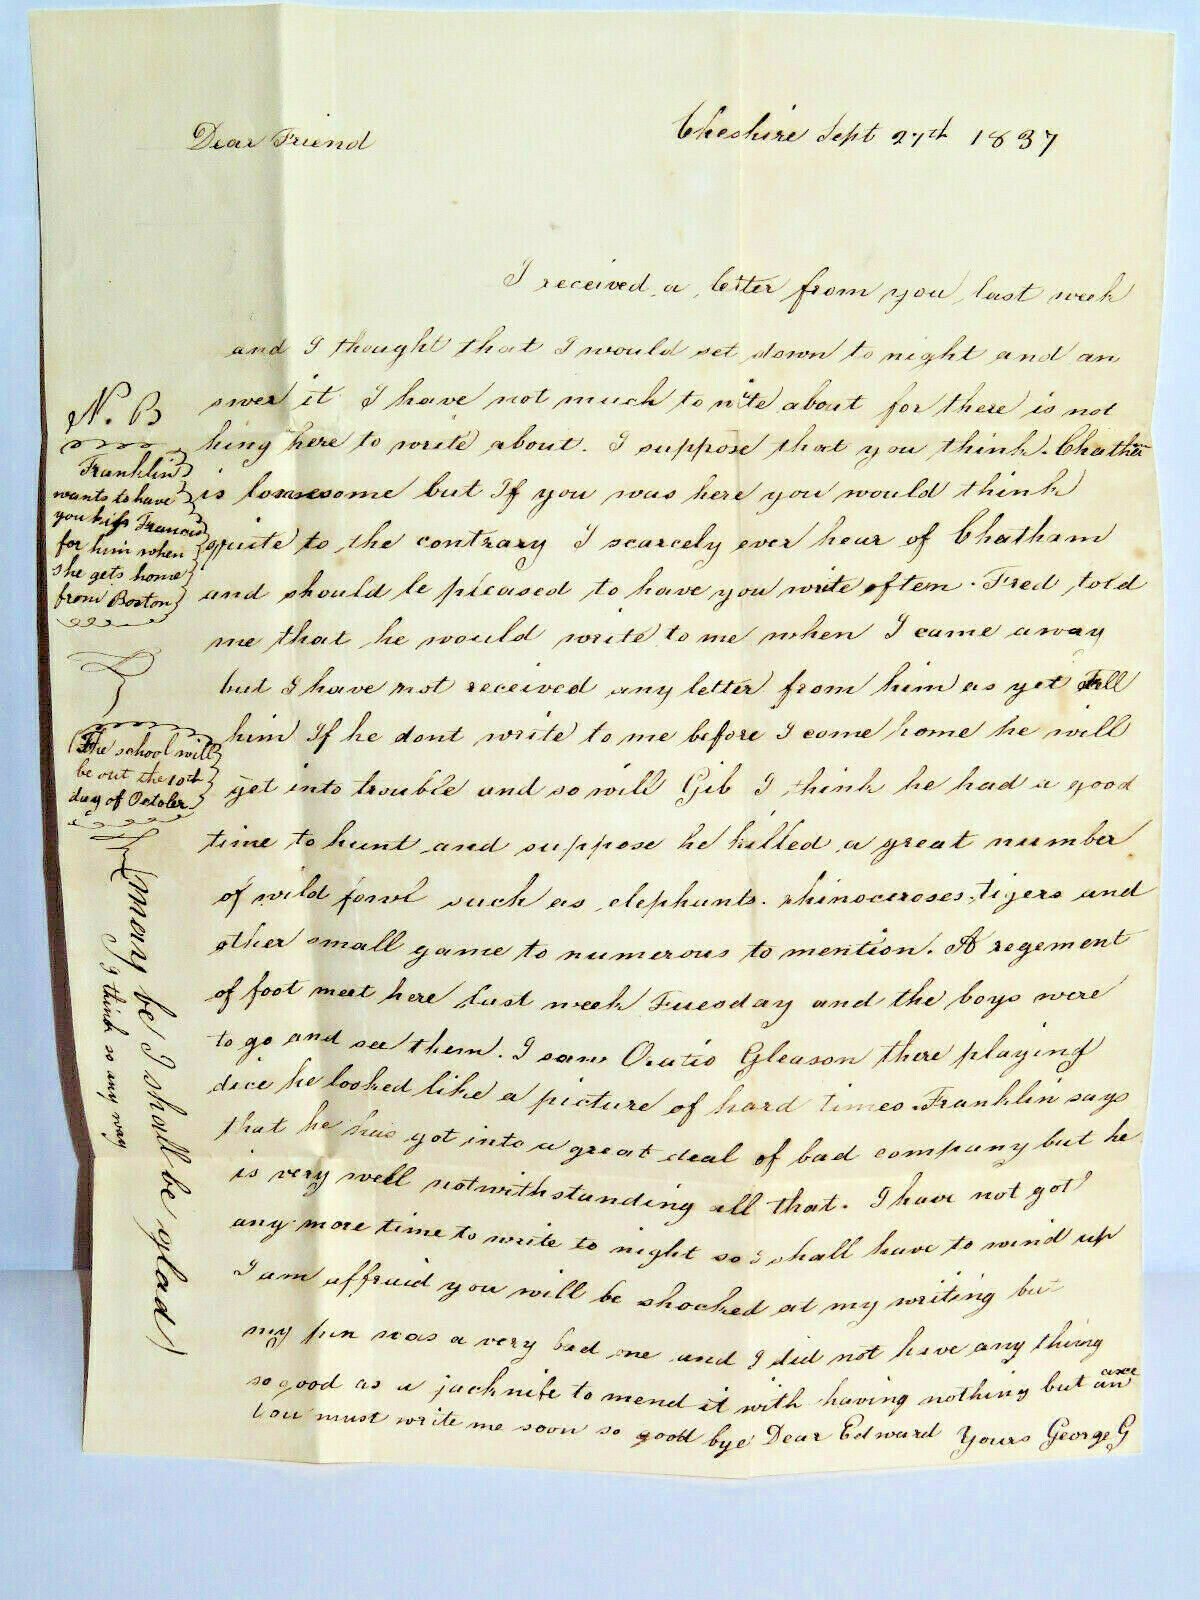 Cheshire Sept 27th 1837
Dear Friend
I received a letter from you last week
and I thought that I would set down to night and an
swer it I have not much to write about for there is not
hing here to write about. I suppose that you think Chatham
is lonesome but If you was here you would think
quite to the contrary I scarcely ever hear of Chatham
and should be pleased to have you write often. Fred told
me that he would write to me when I came away
but I have not received any letter from him as yet Tell
him If he dont write to me before I come home he will
get into trouble and so will Gib I think he had a good
time to hunt and suppose he killed a great number
of wild fowl such as elephants. rhinoceroses, tigers and
other small game to numerous to mention. A regement
of foot meet here last week Tuesday and the boys were
to go and see them. I saw Oratio Gleason there playing
dice he looked like a picture of hard times. Franklin says
that he has got into a great deal of bad company but he
is very well notwithstanding all that. I have not got
any more time to write to night so I shall have to wind up
I am affraid you will be shocked at my writing but
my pen was a very bad one and I did not have any thing
so good as a jacknife to mend it with having nothing but an axe
You must write me soon so good bye Dear Edward Yours George G
N. B
Franklin
wants to have
you kiss Francis
for him when
she gets home
from Boston
The school will
be out the 10th
day of October
(may be I shall be glad)
I think so any way